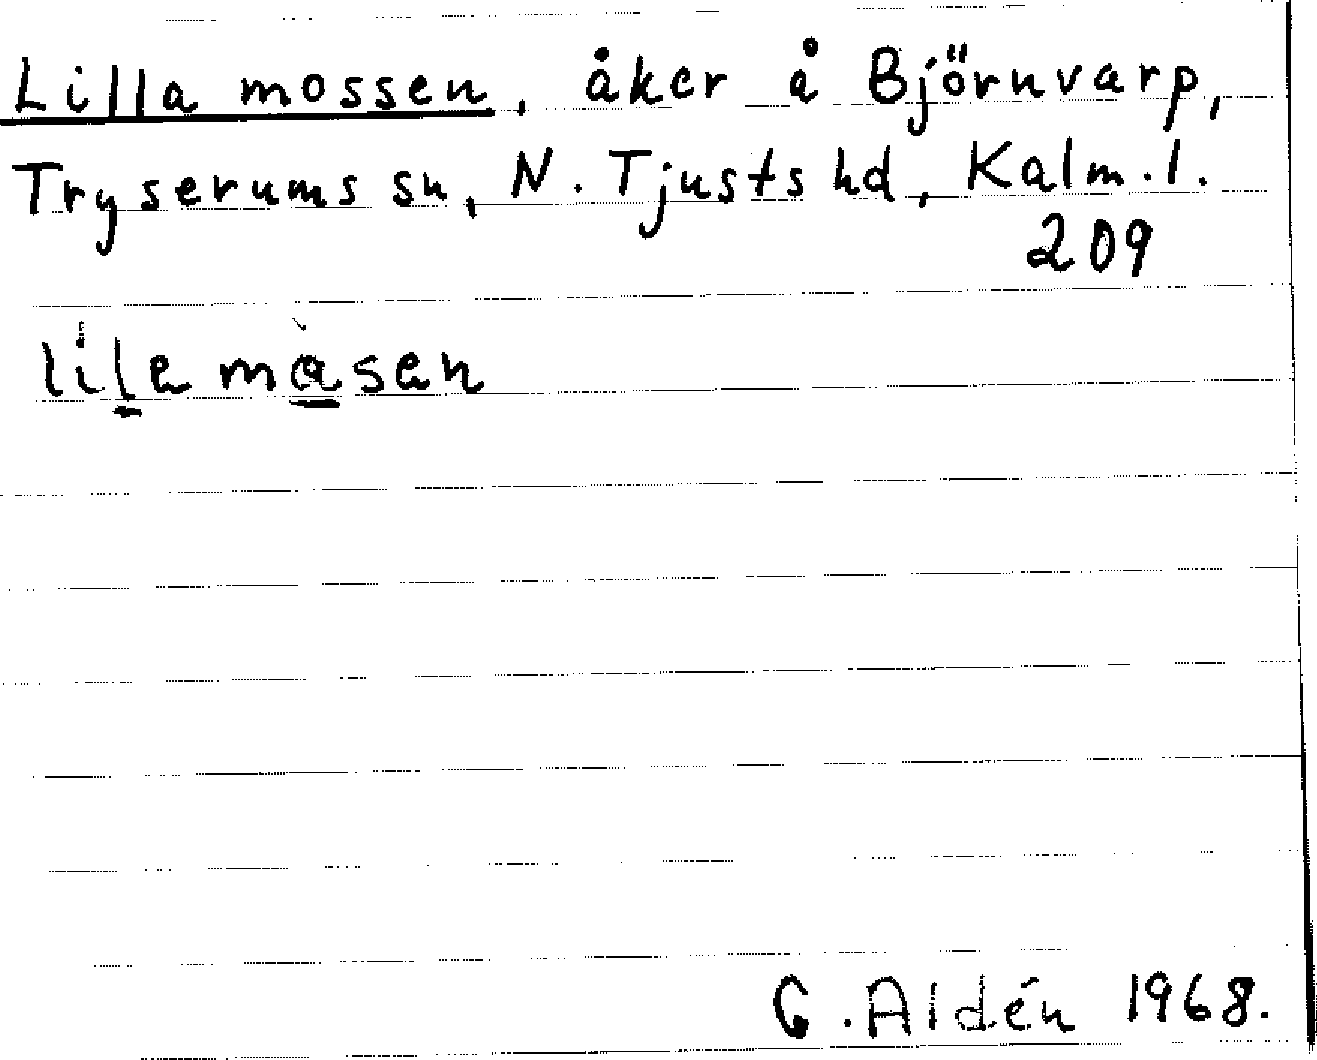 Lilla mossen, åker å Björnvarp,
Tryserums sn, N. Tjusts hd, Kalm. l.
209
G. Aldén 1968.